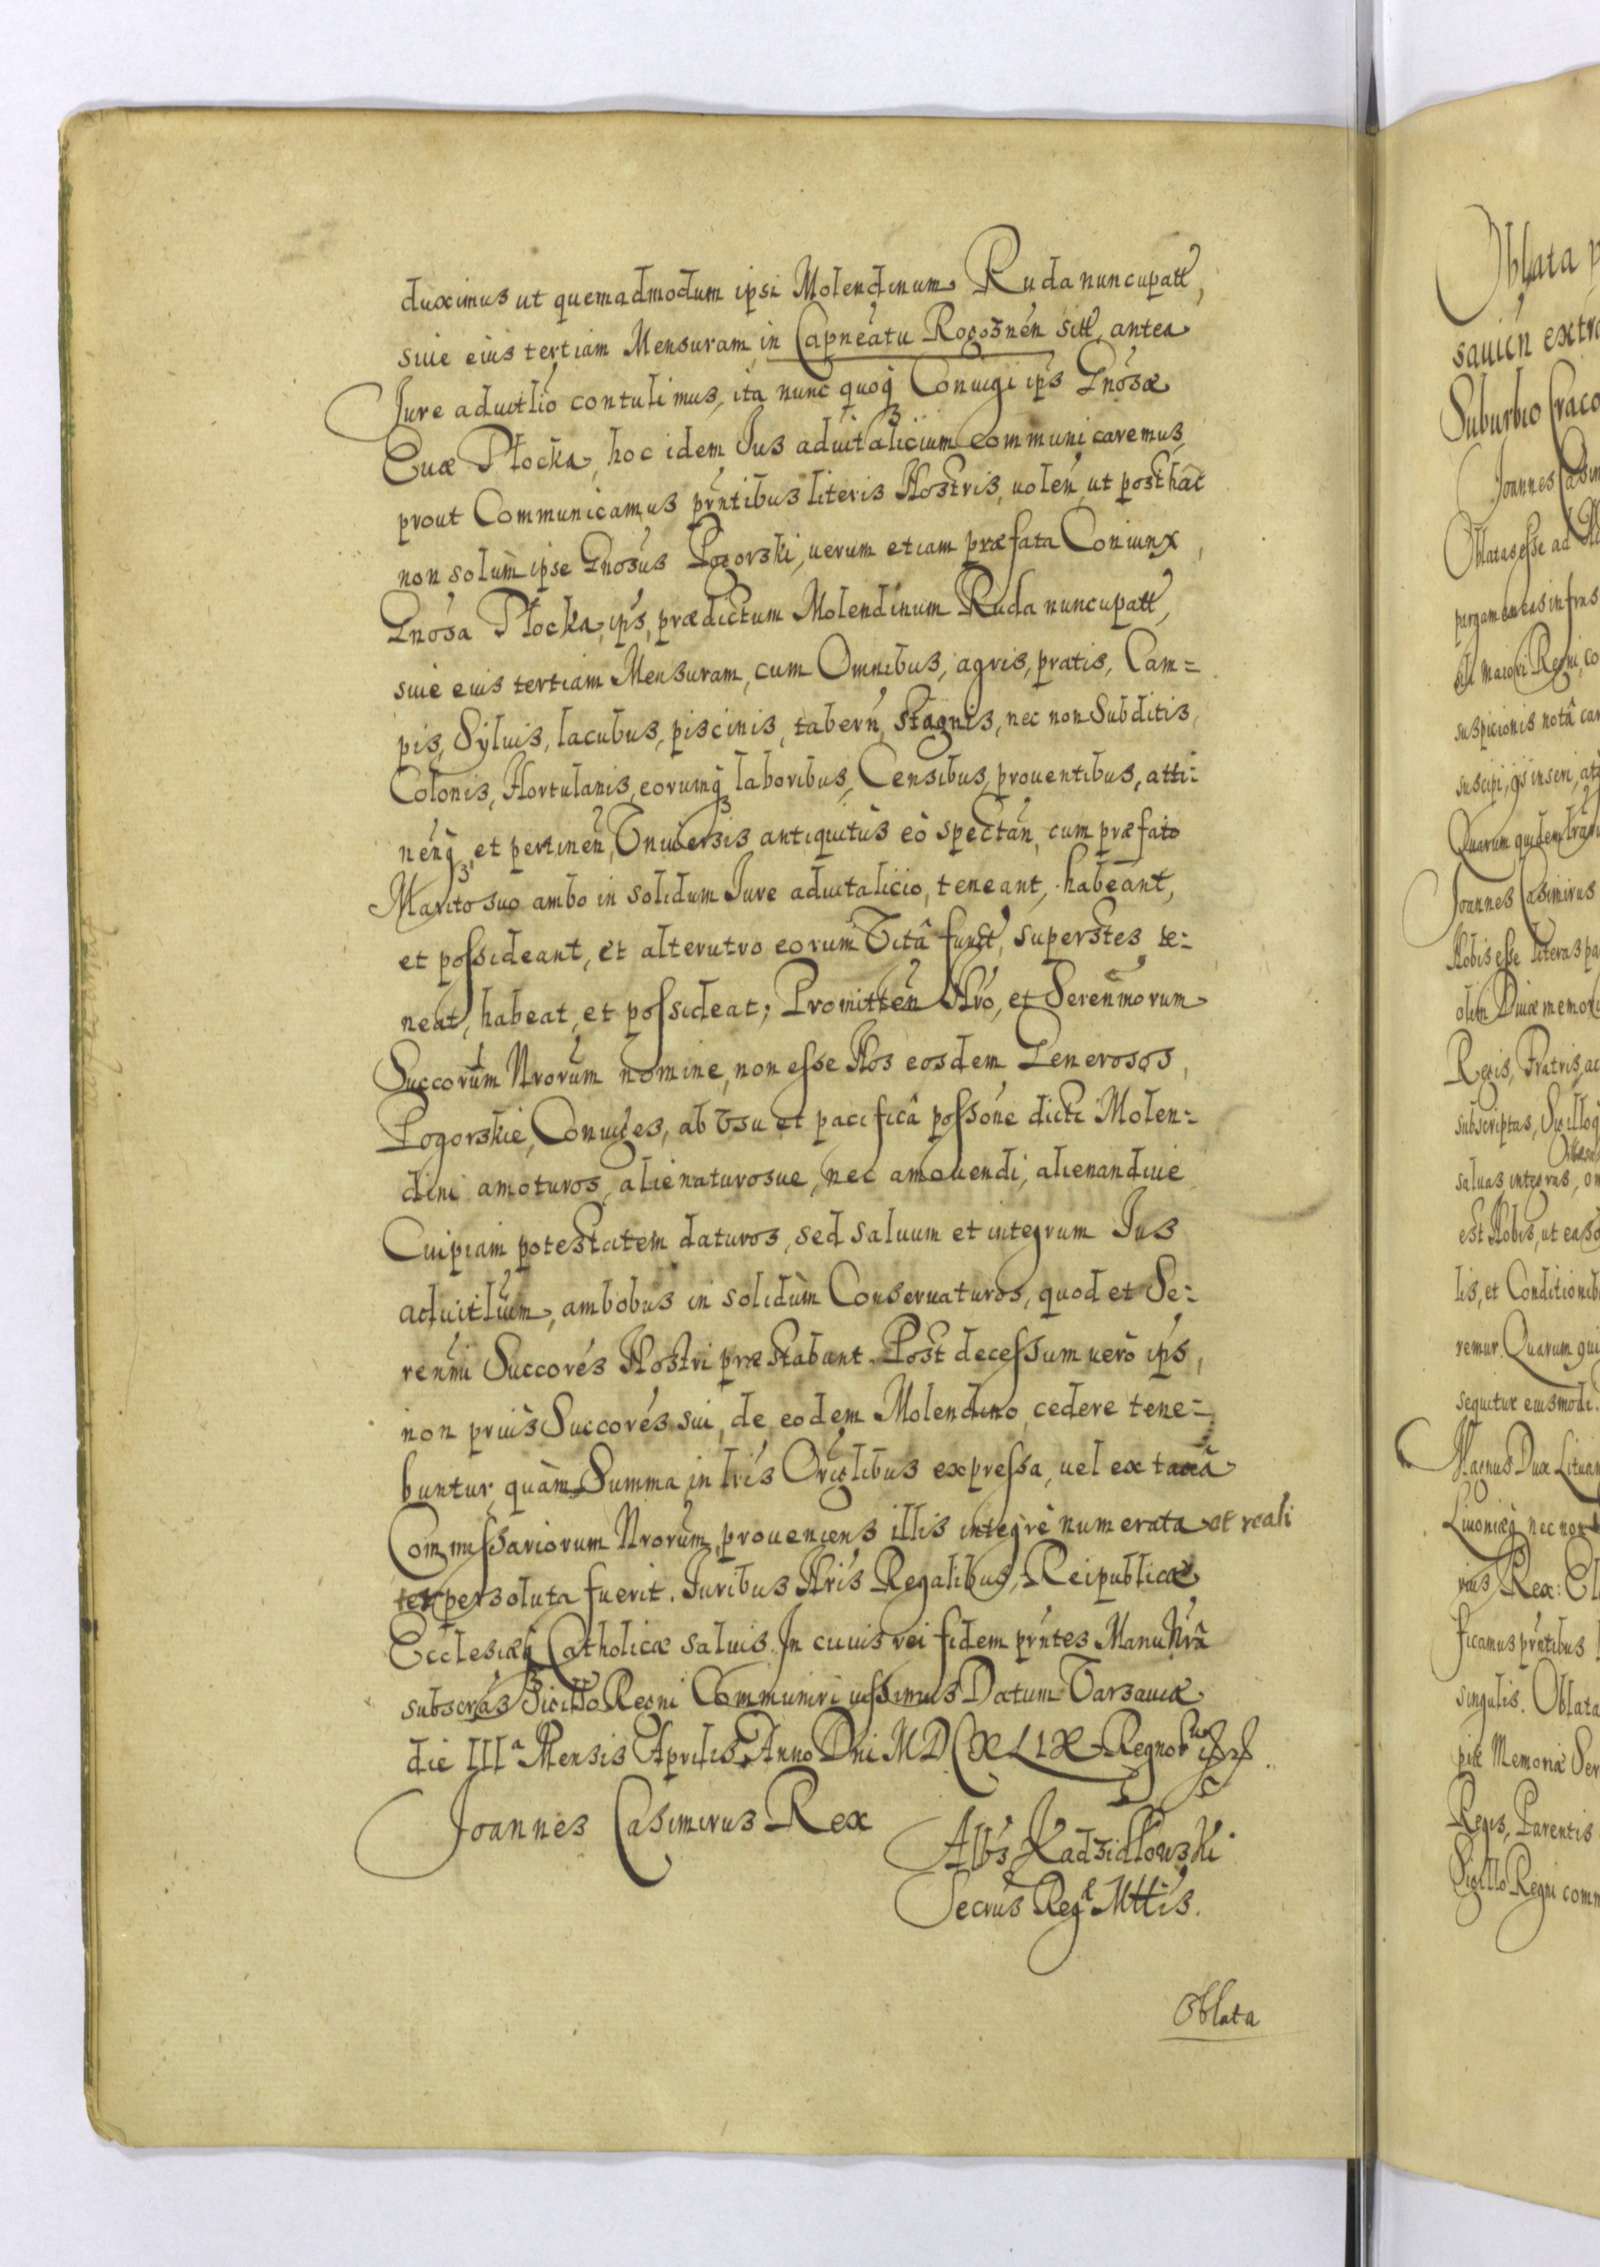 duximus ut quemadmodum ipsi Molendinum Ruda nuncupatt,
siue eius tertiam Mensuram, in Capneatu Rogosnen sitt, antea
Iure aduitlio contulimus, ita nunc quoq Coniugi ips Gnosæ
Euæ Płocka, hoc idem Ius aduitalicium communicaremus,
prout Communicamus pntibus literis Nostris, uolen, ut posthac
non solùm ipse Gnosus Pogorski, uerum etiam præfata Coniunx,
Gnosa Płocka, ips, prædictum Molendinum Ruda nuncupatt,
siue eius tertiam Mensuram, cum Omnibus, agris, pratis, Cam=
pis, Syluis, lacubus, piscinis, tabern, Stagnis, nec non Subditis,
Colonis, Hortulanis, eorumq laboribus, Censibus, prouentibus, atti=
nenq, et pertinen, Vniuersis antiquitùs eò spectan, cum præfato
Marito suo ambo in solidum Iure aduitalicio, teneant, habeant,
et possideant, et alterutro eorum Vitâ funct, superstes te=
neat, habeat, et possideat; Promitten Nro, et Serenmorum
Succorum Nrorum nomine, non esse Nos eosdem Generosos,
Pogorskie, Coniuges, ab Vsu et pacificâ possone dicti Molen=
dini amoturos, alienaturosue, nec amouendi, alienandiue
Cuipiam potestatem daturos, sed saluum et integrum Ius
aduitlium, ambobus in solidùm Conseruaturos, quod et Se=
renmi Succores Nostri præstabant. Post decessum uerò ips,
non priùs Succores sui, de eodem Molendino cedere tene=
buntur, quàm Summa in lris Origlibus expressa, uel ex taxâ
Commissariorum Nrorum, proueniens illis integrè numerata et reali
ter persoluta fuerit. Iuribus Nris Regalibus, Reipublicæ
Ecclesiæq Catholicæ saluis. In cuius rei fidem pntes Manu Nrâ
subscras Sigillo Regni Communiri iussimus Datum Varsauiæ
die IIIa Mensis Aprilis Anno Dni MDCXLIX Regnor
Joannes Casimirus Rex
Albs Kadzidłowski
Secrus Reg Mttis.
Oblata
Oblata
sauien extra
Suburbio Craco
Joannes Casim
Oblatas esse ad
pergameneas infras
suspicionis notâ car
Quarum quidem
Joannes Casimirus
Nobis esse literas pa
olim Diuæ memori
Regis, Fratris, ac
subscriptas, Sigilloq
saluas integras, om
est Nobis, ut easd
lis, et Conditionib
remur. Quarum qui
sequitur eiusmodi.
Magnus Dux Lituan
Liuoniæq nec non
rius Rex: El
ficamus pntibus
singulis. Oblata
piæ Memoriæ Ser
Regis, Parentis
Sigillo Regni comm